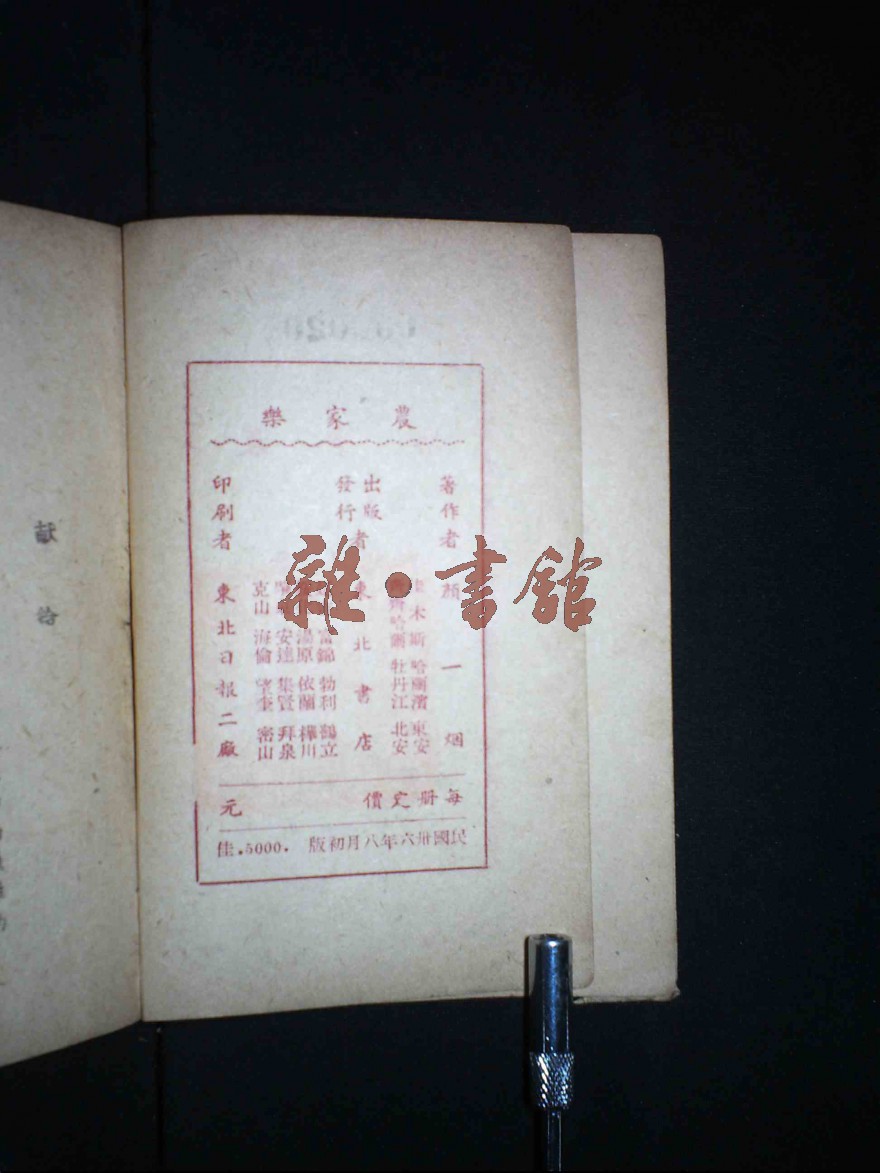 農家樂
著作者 顏一烟
出版
發行者 東北書店
木斯 哈爾濱 東安
齊哈爾 牡丹江 北安
富錦 勃利 鶴立
湯原 依蘭 樺川
安達 集賢 拜泉
克山 海倫 望奎 密山
印刷者 東北日報二廠
每册定價 元
民國卅六年八月初版 .5000. 佳
雜·書館
獻給